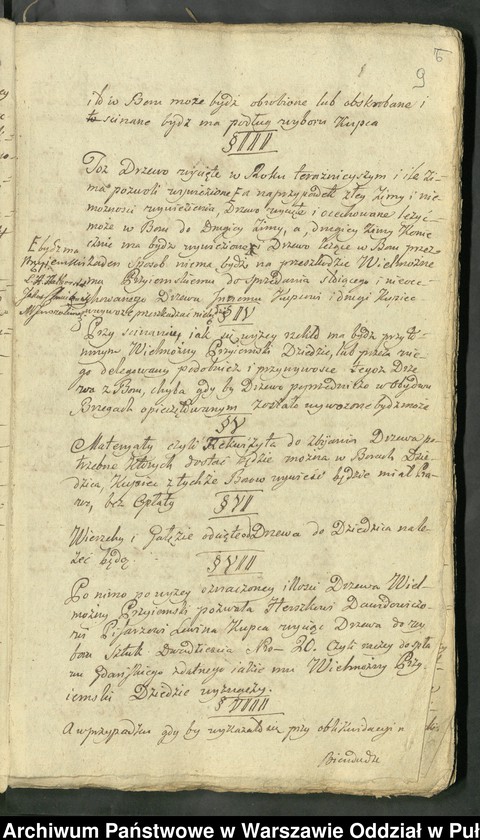 9
i to w Boru może bydź obrobione lub obskrobane i
to scinane bydź ma podług wyboru Kupca
§ IIII
Toż Drzewo wycięte w Roku teraznieyszym i ile Zi-
ma pozwoli wywiezione, a naprzypadek złey Zimy i nie
możności wywiezienia, Drzewo wycięte i ocechowane leżyć
może w Boru do Drugiey Zimy, a drugiey Zimy Konie
cznie ma bydź wywiezione i Drzewo leżące w Boru przez
żaden Sposob niema bydź na przeszkodzie Wielmożne
mu Przyiemskiemu do Sprzedania stoiącego i nieoce
chowanego Drzewa Innemu Kupcowi i drugi Kupiec
wywozić przeszkadzać nie
bydź ma
Przyiemski
§ IV
Przy scinaniu, jak się wyżey rzekło ma bydź przyto-
mnym Wielmożny Przyiemski Dziedzic, lub przez nie
go delegowany podobnież i przy wywozie tegoż Drze
wa z Boru, chyba gdy by Drzewo pomienione w obydwu
Brzegach opieczętowanym zostało wywozone bydź może
§ V
Materyały czyli Rekwizyta do zbijania Drzewa po
trzebne których dostać będzie można w Borach Dzie
dzica, Kupiec z tychże Borow wywieść będzie miał Pra-
wo, bez Opłaty
§ VI
Wierzchy i Gałęzie odcięte od Drzewa do Dziedzica nale
żeć będą.
§ VII
Po mimo powyżey oznaczoney illości Drzewa Wiel
możny Przyiemski pozwala Herszkowi Dawidowiczo
wi Pisarzowi Lewina Kupca wyciąć Drzewa do wy
boru Sztuk Dwadzieścia Nro 20. czyli
Gdańskiego zdatnego jakie mu Wielmożny Przy
iemski Dziedzic wyznaczy.
§ VIII
A wprzypadku gdy by wykazało się przy oblikwidacyi